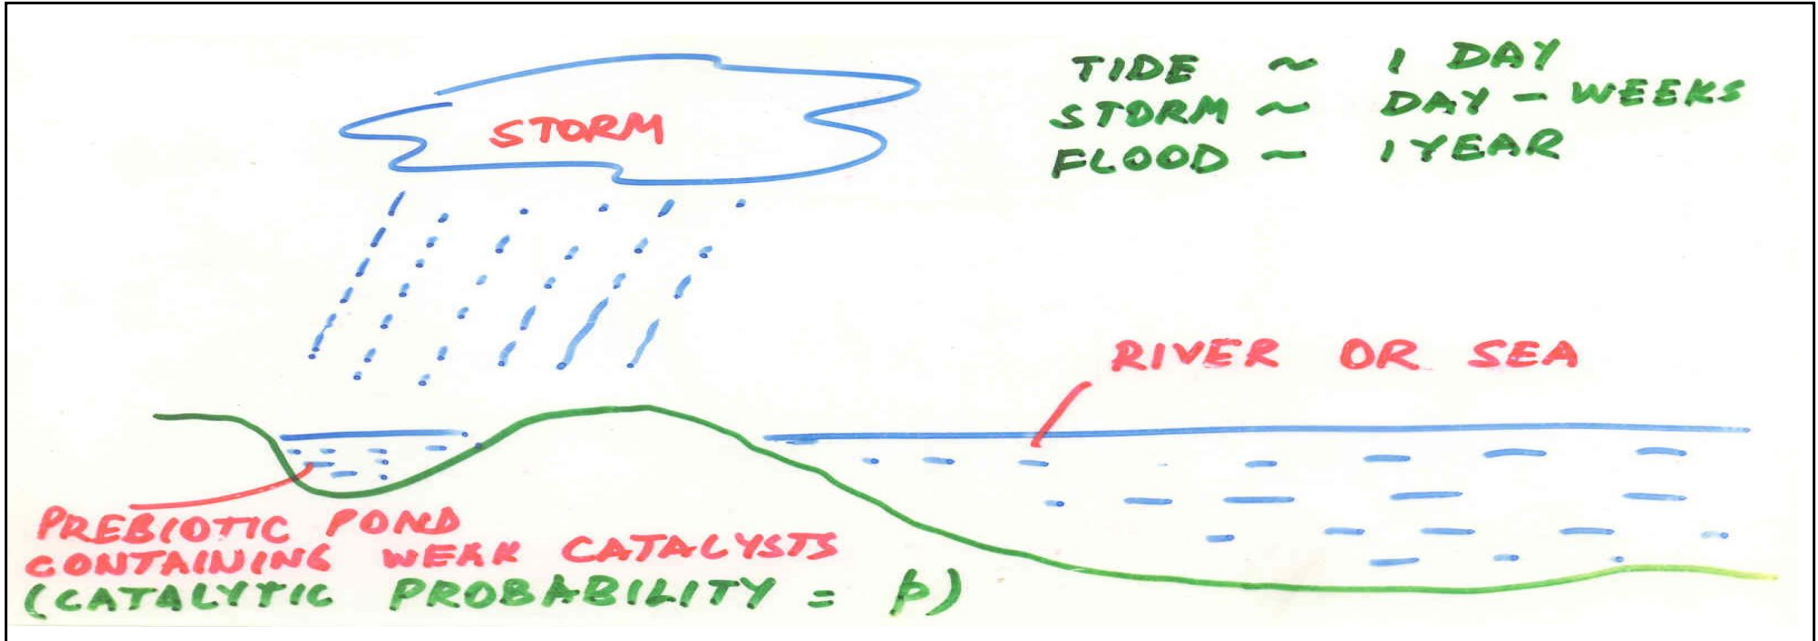 TIDE ~ 1 DAY
STORM ~ DAY - WEEKS
FLOOD ~ 1 YEAR
STORM
RIVER OR SEA
PREBIOTIC POND
CONTAINING WEAK CATALYSTS
(CATALYTIC PROBABILITY = p)